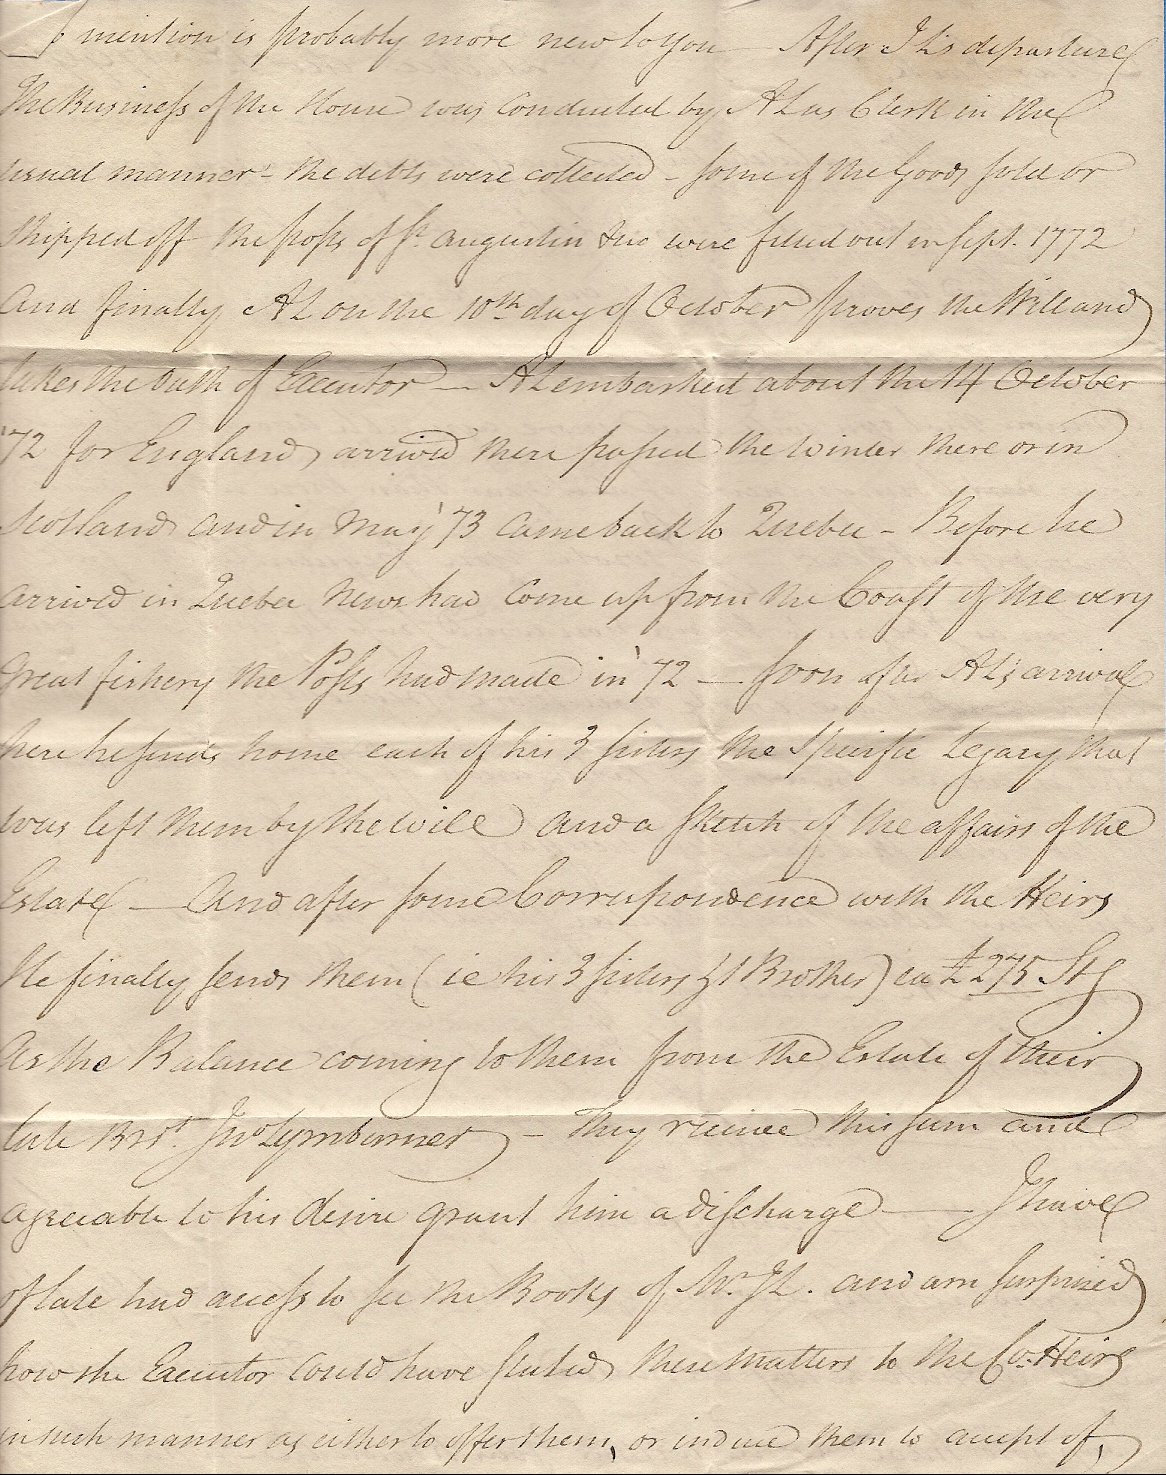 I mention is probably more new to you — After J L's departure
The Business of the House was conducted by A L as Clerk in the
usual manner - the debts were collected - some of the Goods sold or
shipped off the posts of St. Augustin &c were fitted out in Sept. 1772
And finally A L on the 10th day of October proves the Will and
takes the Oath of Executor — A L embarked about the 14 October
'72 for England, arrived there passed the winter there or in
Scotland and in May '73 came back to Quebec - Before he
arrived in Quebec News had come up from the Coast of the very
great fishery the Posts had made in '72 — soon after A L's arrival
here he sends home each of his 3 sisters the Specific Legacy that
was left them by the will and a sketch of the affairs of the
Estate — And after some Correspondence with the Heirs
He finally sends them (ie his 3 sisters & 1 Brother) ea £275 Stg
As the Balance coming to them from the Estate of their
late Bror. Jno Lymburner - They receive this sum and
agreeable to his desire grant him a discharge — I have
of late had access to see the Books of Mr. J L. and am surprized
how the Executor could have stated these matters to the Co: Heirs
in such manner as either to offer them, or induce them to accept of,